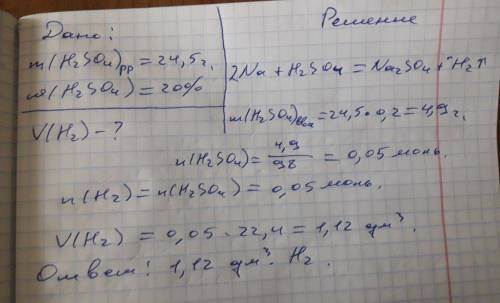 Дано:
m(H₂SO₄)рр = 24,5г.
ω(H₂SO₄) = 20%
V(H₂) - ?
Решение
2Na + H₂SO₄ = Na₂SO₄ + H₂↑
m(H₂SO₄) = 24,5 · 0,2 = 4,9 г.
n(H₂SO₄) = 4,9/98 = 0,05 моль.
n(H₂) = n(H₂SO₄) = 0,05 моль.
V(H₂) = 0,05 · 22,4 = 1,12 дм³.
Ответ: 1,12 дм³ H₂.